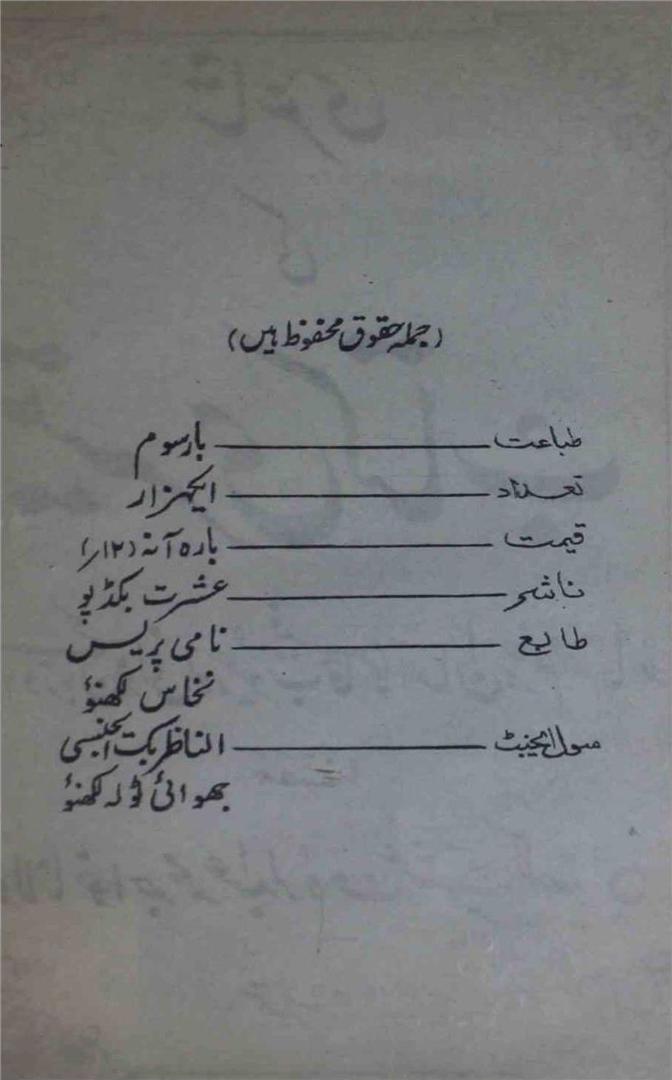 (جملہ حقوق محفوظ ہیں)
طباعت ــــــــ بار سوم
تعداد ــــــــ ایکہزار
قیمت ــــــــ بارہ آنہ (۱۲؍)
ناشر ــــــــ عشرت بکڈپو
طابع ــــــــ نامی پریس
نخاس لکھنؤ
سول ایجنٹ ــــــــ الناظر بک ایجنسی
بھوائی ٹولہ لکھنؤ